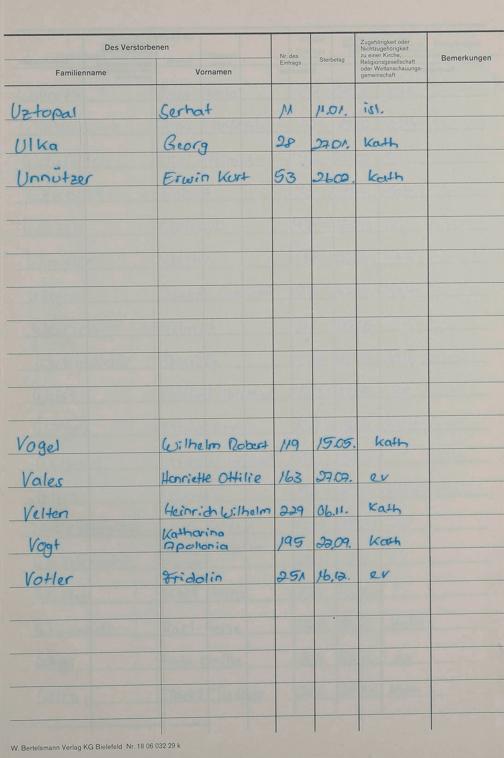 Des Verstorbenen
Familienname Vornamen Nr. des Eintrags Sterbetag Zugehörigkeit oder Nichtzugehörigkeit zu einer Kirche, Religionsgesellschaft oder Weltanschauungsgemeinschaft Bemerkungen
Uztopal Serhat 11 11.01. isl.
Ulka Georg 28 27.01. Kath
Unnützer Erwin Kurt 53 26.02. kath
Vogel Wilhelm Robert 119 15.05. kath
Vales Henriette Ottilie 163 27.07. ev
Velten Heinrich Wilhelm 229 06.11. Kath
Vogt Katharina Apollonia 195 22.09. Kath
Votler Fridolin 251 16.12. ev
W. Bertelsmann Verlag KG Bielefeld Nr. 18 06 032 29 k